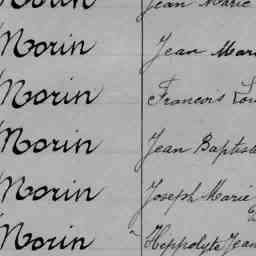 Morin Jean Marie
Morin Jean Mari
Morin Francois Lou
Morin Jean Baptiste
Morin Joseph Marie
Morin Hippolyte Jean